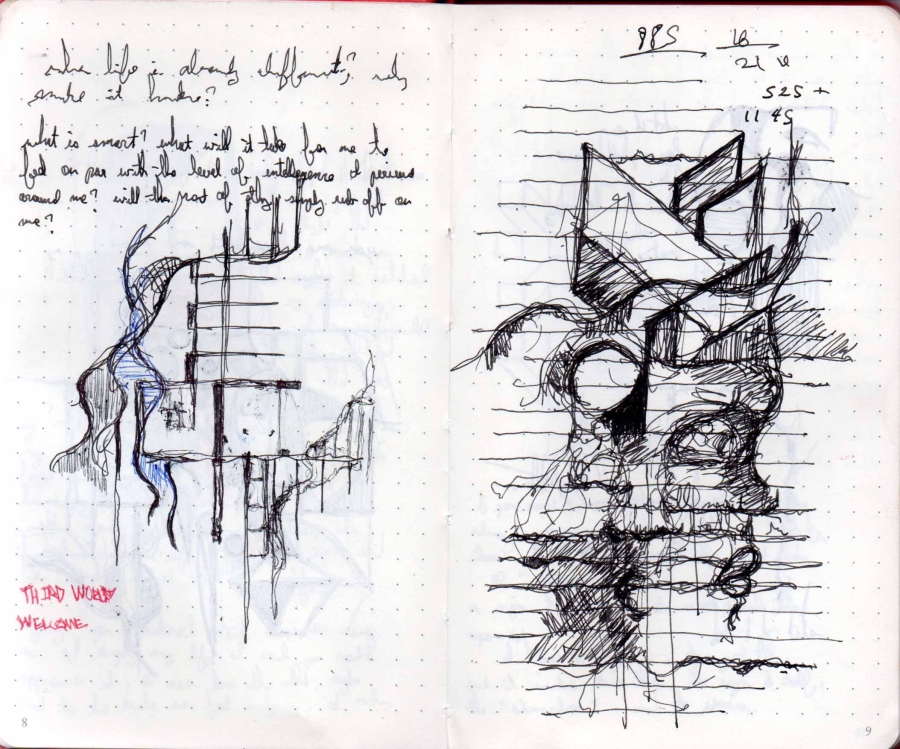 when life is already difficult, why
make it harder?
what is smart? what will it take for me to
feel on par with the level of intelligence of persons
around me? will the rest of simply rub off on
me?
THIRD WORLD
WELCOME
8
985 18
21
525 +
1145
9